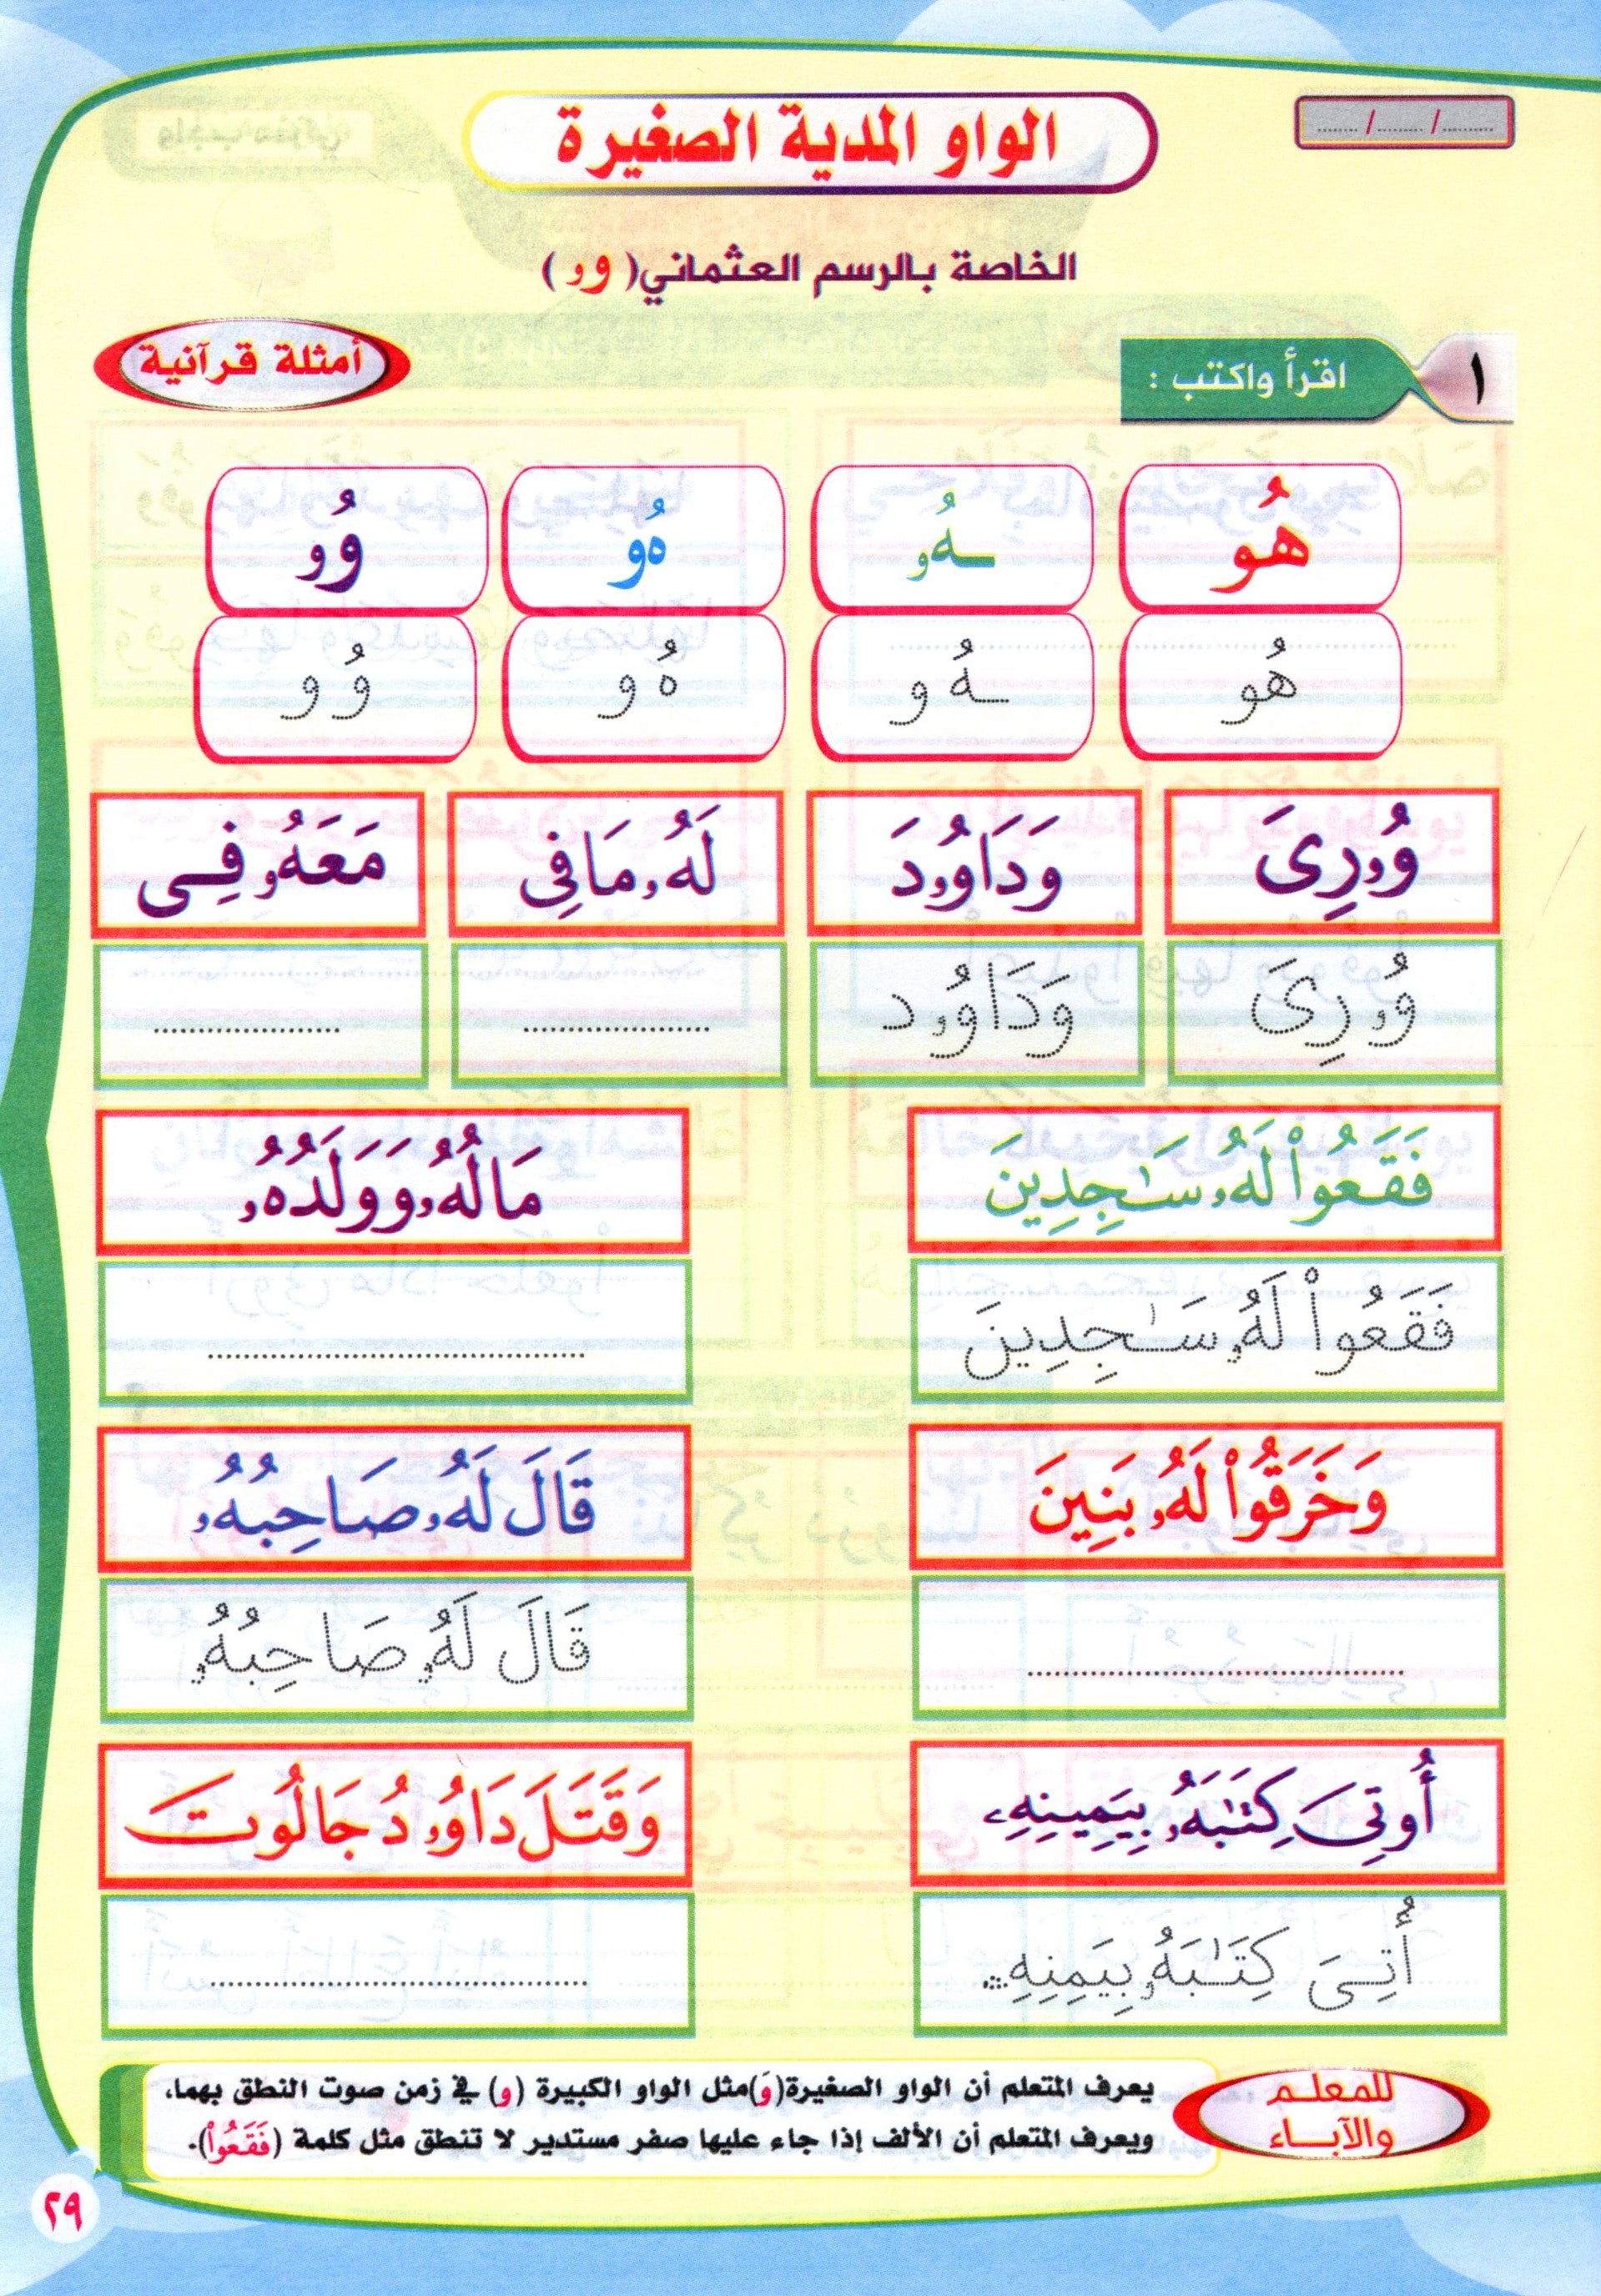 الواو المدية الصغيرة
الخاصة بالرسم العثماني (وۥ)
١ اقرأ واكتب :
أمثلة قرآنية
هُو ـهُۥ هُو وُۥ
هُو ـهُ و هُ و وُ و
وُۥرِىَ وَدَاوُۥدَ لَهُۥ مَا فِى مَعَهُۥ فِى
وُۥرِىَ وَدَاوُۥد
فَقَعُوا۟ لَهُۥ سَـٰجِدِينَ مَالُهُۥ وَوَلَدُهُۥ
فَقَعُوا۟ لَهُۥ سَـٰجِدِينَ
وَخَرَقُوا۟ لَهُۥ بَنِينَ قَالَ لَهُۥ صَاحِبُهُۥ
قَالَ لَهُۥ صَاحِبُهُۥ
أُوتِىَ كِتَـٰبَهُۥ بِيَمِينِهِۦ وَقَتَلَ دَاوُۥدُ جَالُوتَ
أُتِىَ كِتَـٰبَهُۥ بِيَمِنِهِۦ
للمعلم والآباء
يعرف المتعلم أن الواو الصغيرة (وَ) مثل الواو الكبيرة (و) في زمن صوت النطق بهما،
ويعرف المتعلم أن الألف إذا جاء عليها صفر مستدير لا تنطق مثل كلمة (فَقَعُوا۟).
٢٩